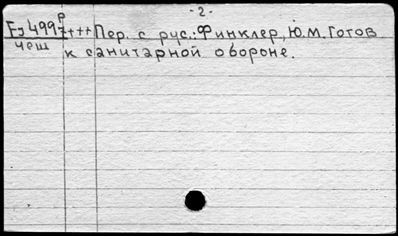 -2-
Гј 4997 р
чеш
++++ Пер. с рус.: Финклер, Ю.М. Готов
к санитарной обороне.